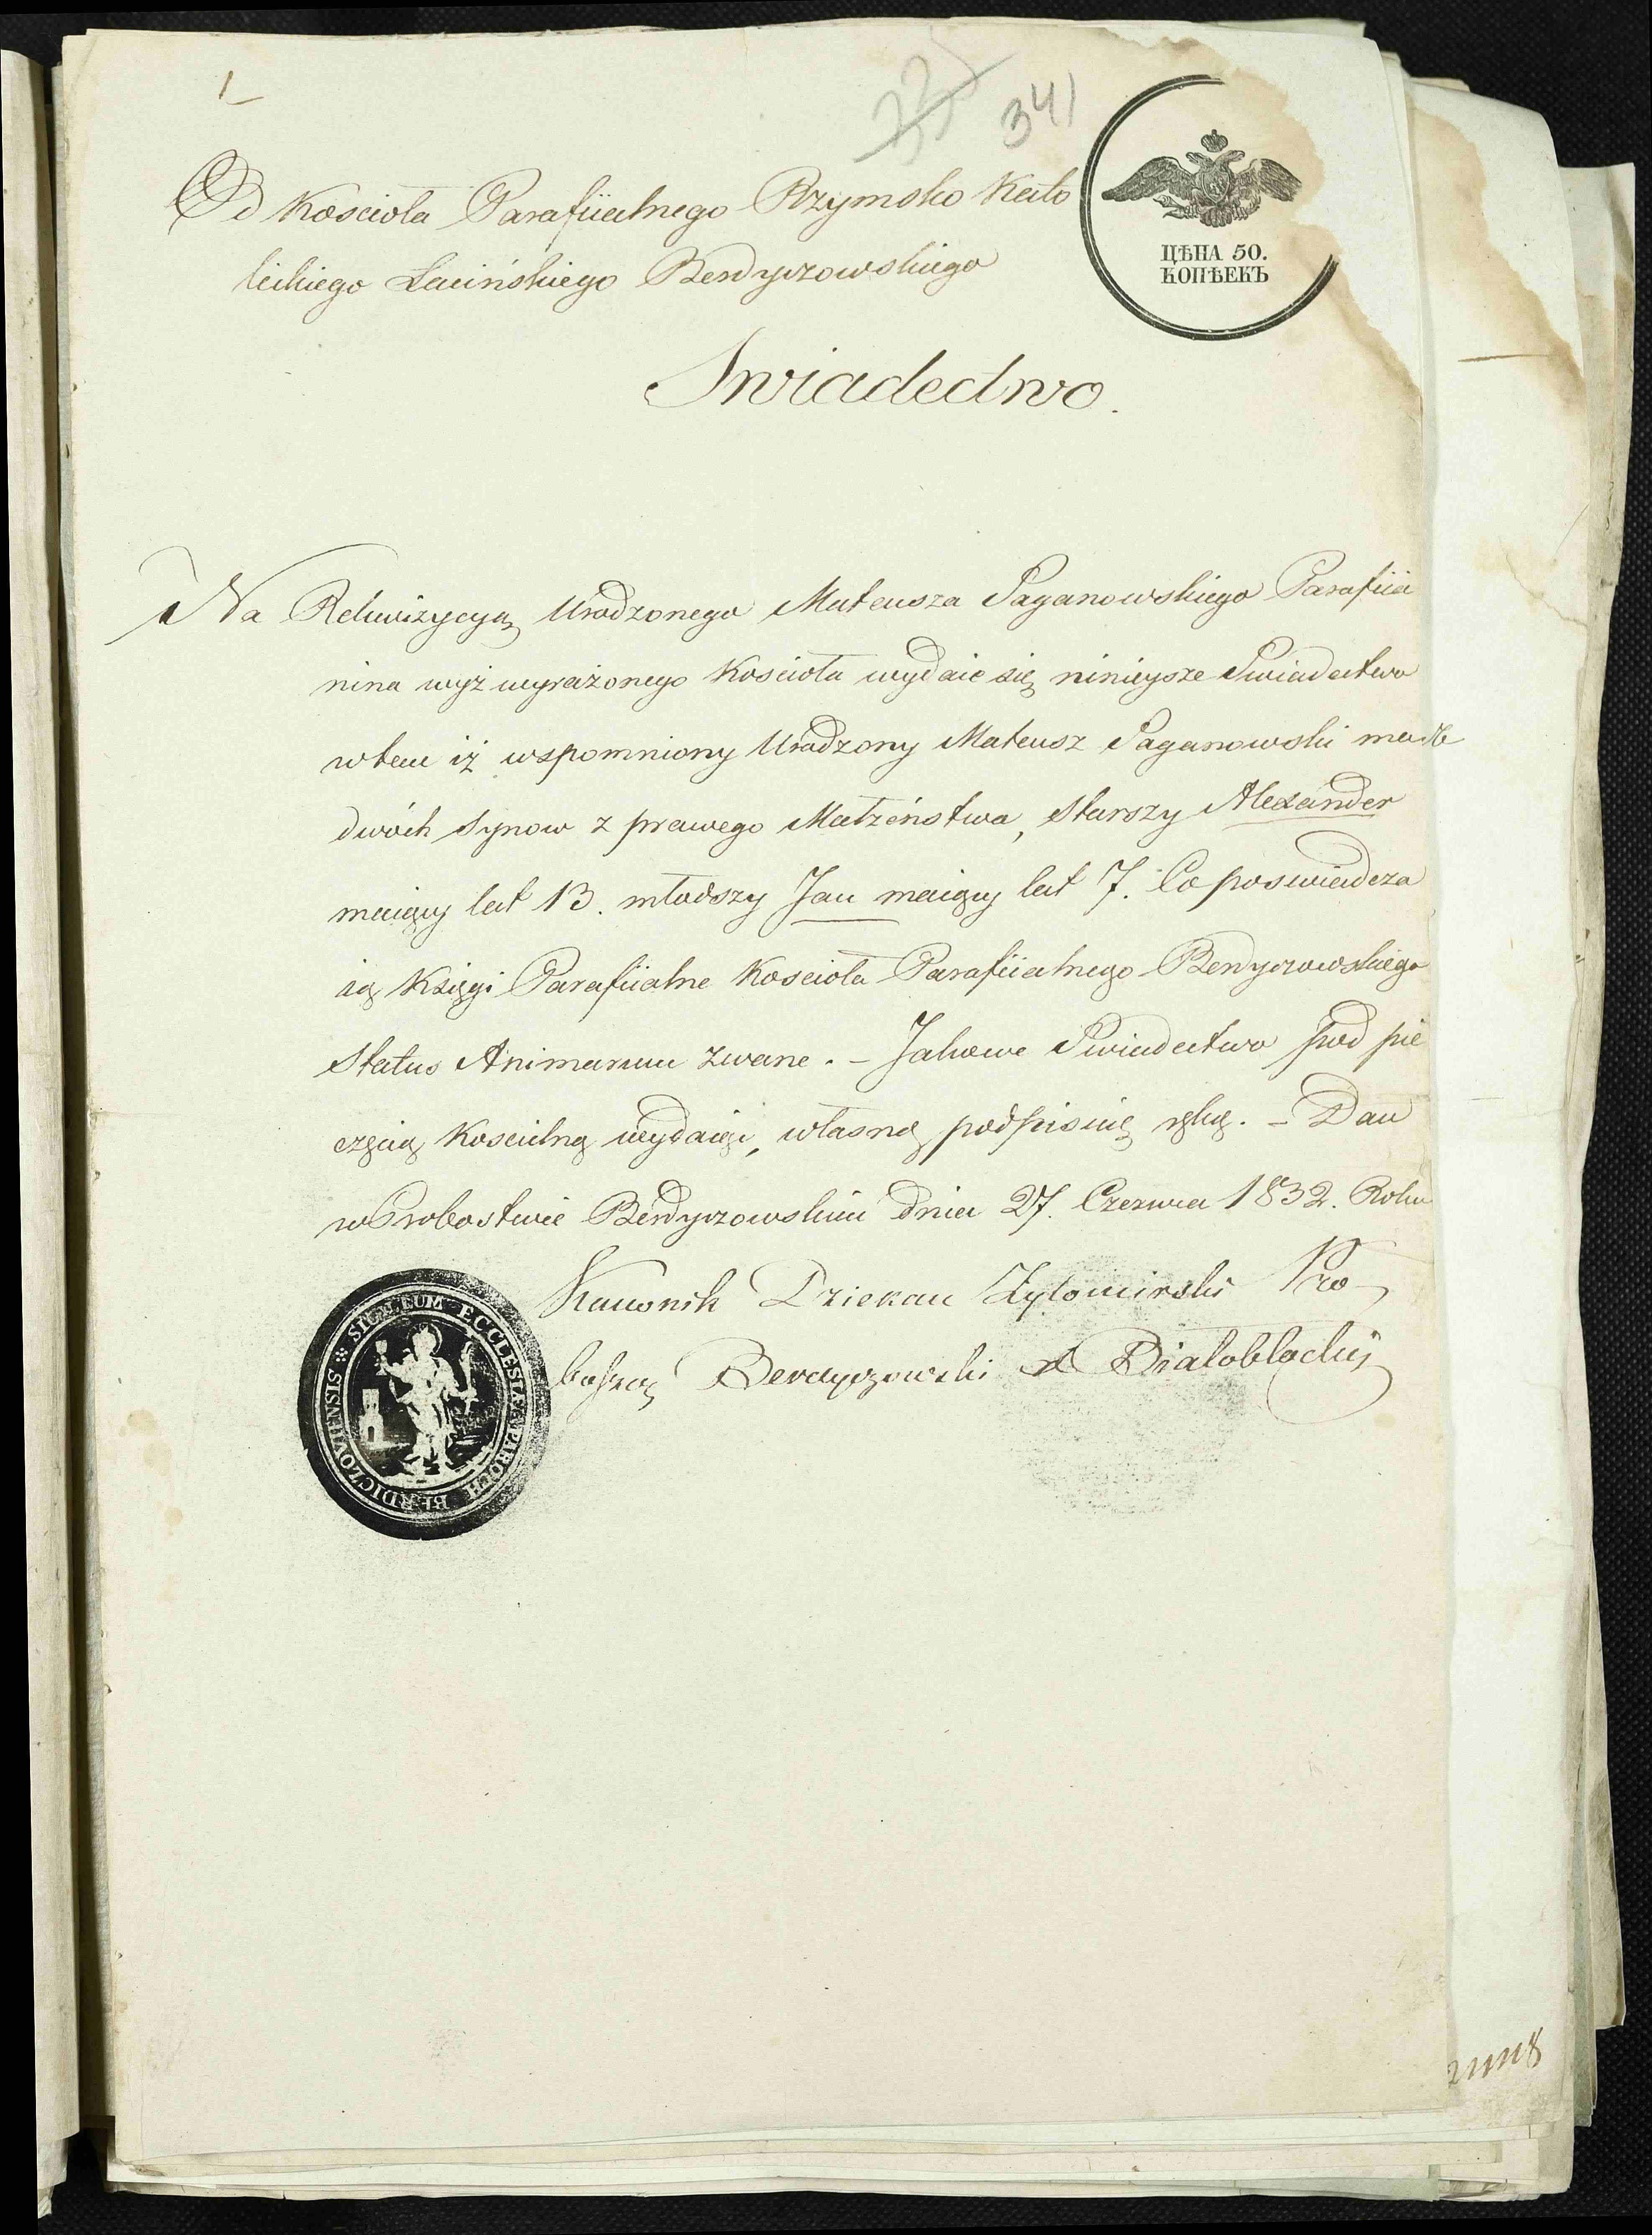 1
341
Od Kościoła Parafiialnego Rzymsko Kato
lickiego Łacińskiego Berdyczowskiego
ЦѢНА 50.
КОПѢЕКЪ
Swiadectwo.
Na Rekwizycyą Urodzonego Mateusza Paganowskiego Parafiia
nina wyż wyrażonego Kościoła wydaie się ninieysze Swiadectwo
w tem iż wspomniony Urodzony Mateusz Paganowski ma
dwóch Synow z prawego Małżeństwa, Starszy Alexander
maiący lat 13. młodszy Jan maiący lat 7. Co poswiadcza
ią Księgi Parafiialne Kościoła Parafiialnego Berdyczowskiego
Status Animarum zwane. – Jakowe Swiadectwo pod pie
częcią Koscielną wydaiąc, własną podpisuię ręką. – Dan
w Probostwie Berdyczowskim dnia 27. Czerwca 1832. Roku
Kanonik Dziekan Zytomirski Pro
boszcz Berdyczowski A Białobłocki
SIGILLUM ECCLESIAE PAROCH BERDICZOVIENSIS